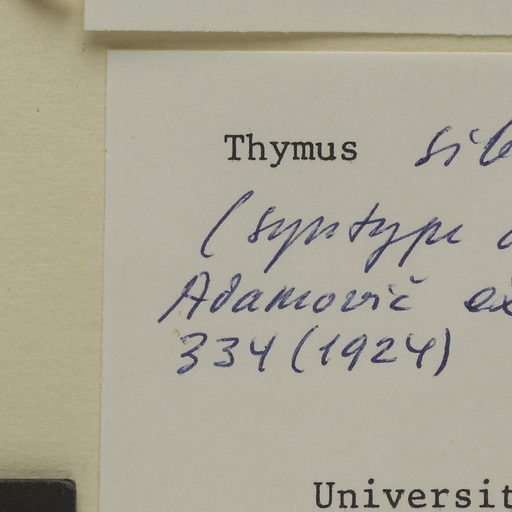 Thymus sib
(syntype
Adamović ex
334 (1924)
Universit